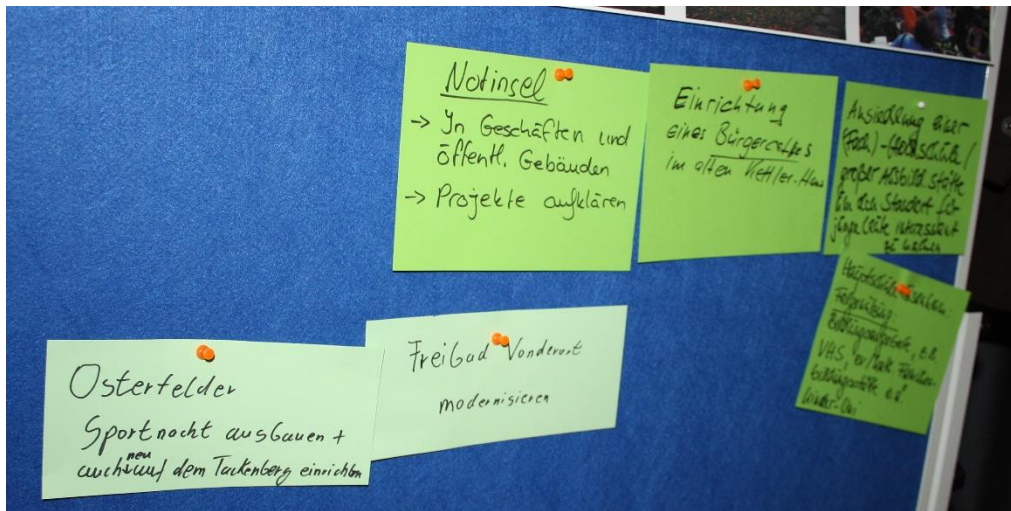 Notinsel
-> In Geschäften und
öffentl. Gebäuden
-> Projekte aufklären
Einrichtung
eines Bürgercafés
im alten Kettler-Haus
Ansiedlung einer
(Fach)-Hochschule/
großer Ausbild.stätte
um den Standort für
junge Leute interessant
zu machen
Hauptschule
Folgenutzung:
Bildungsangebote, z.B.
VHS,
Kinder-Uni
Osterfelder
Sportnacht ausbauen +
auch neu auf dem Tackenberg einrichten
Freibad Vonderort
modernisieren